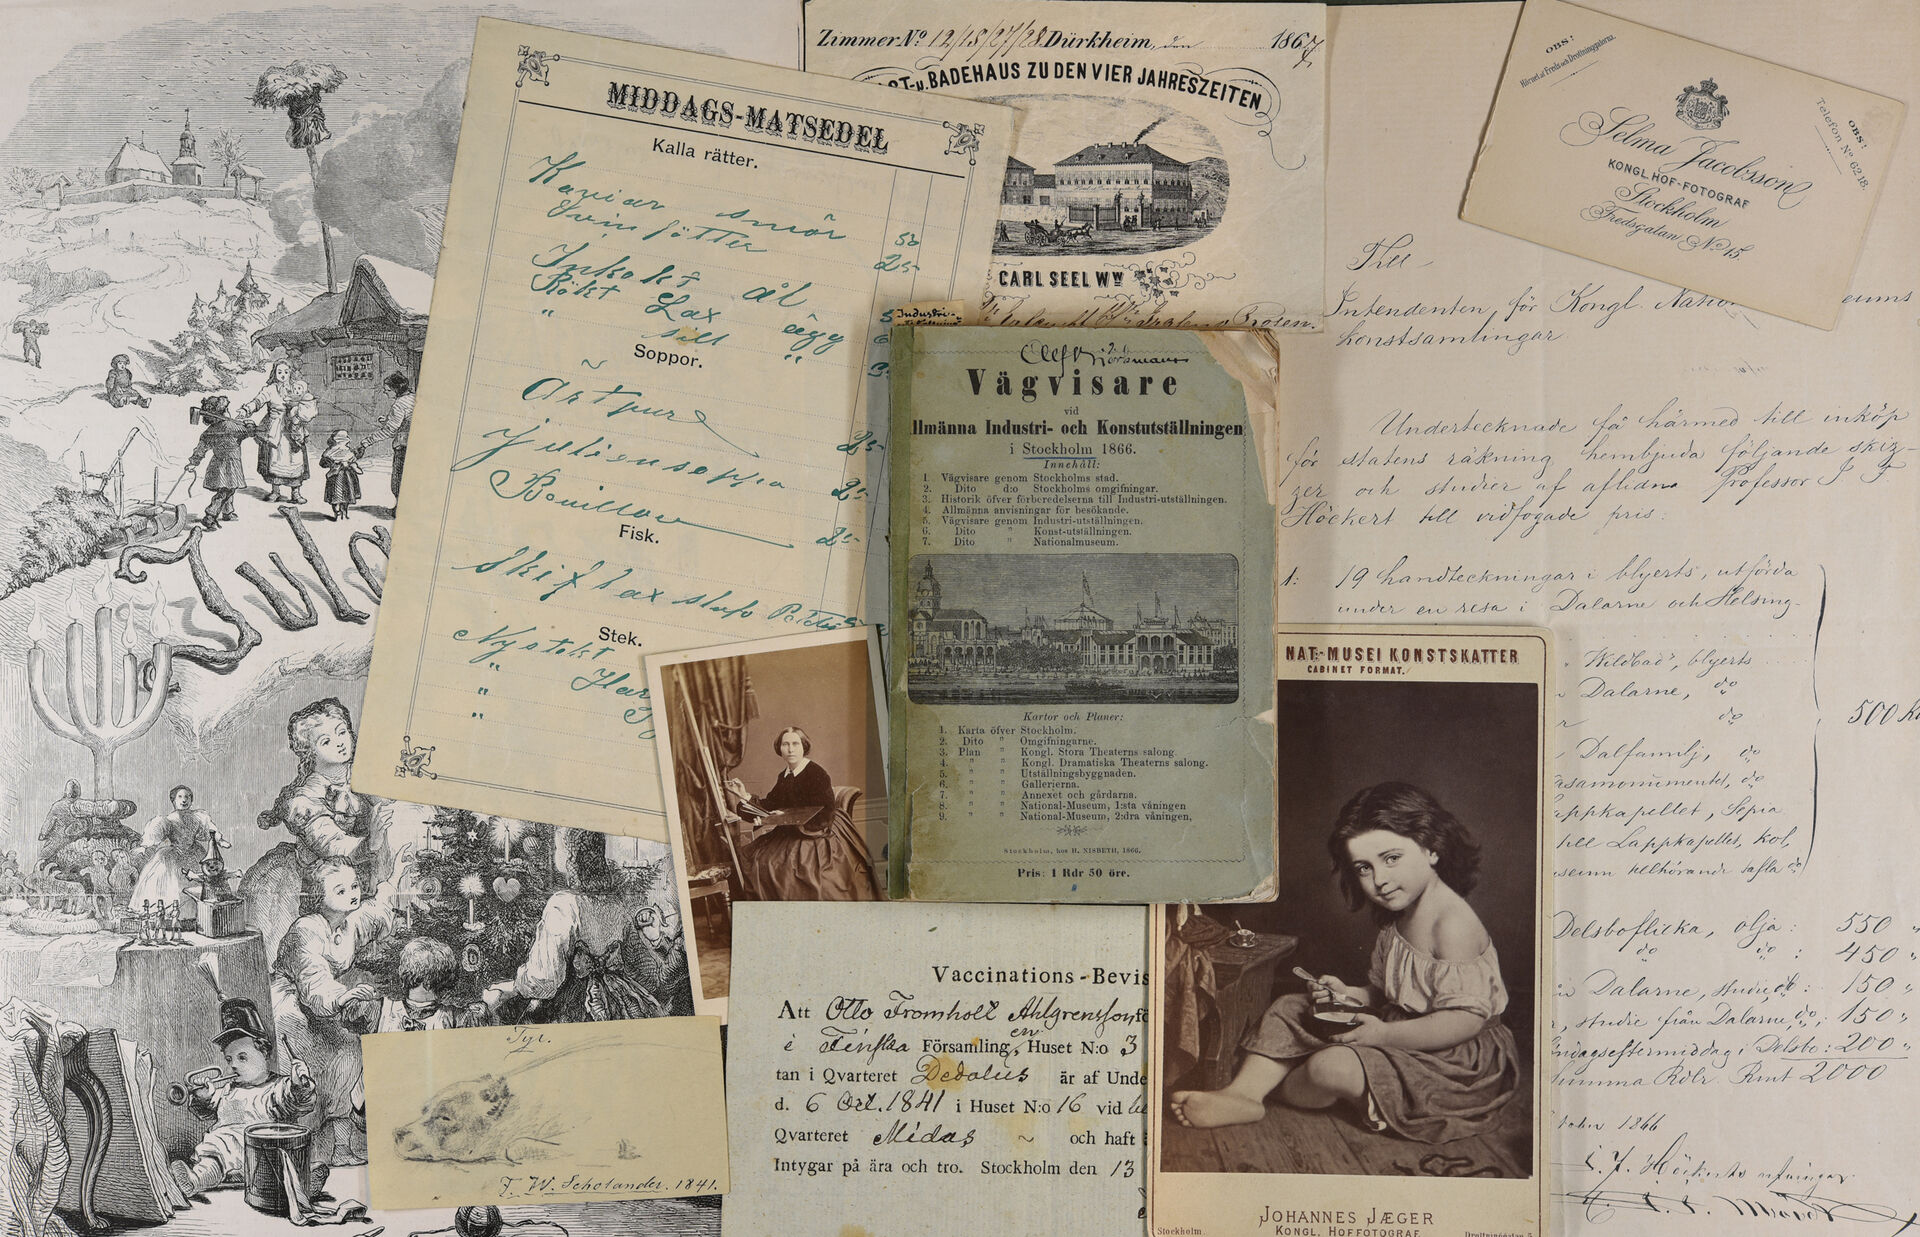 Zimmer No 12/18/27/28 Dürkheim, den 1867.
BADEHAUS ZU DEN VIER JAHRESZEITEN
CARL SEEL Ww
MIDDAGS-MATSEDEL
Kalla rätter.
Kaviar smör 50
Svinfötter 25
Inkokt ål
Rökt Lax ägg
" sill "
Soppor.
Ärtpuré 25
Juliensoppa 25
Bouillon 25
Fisk.
Stek.
Nystekt
"
"
"
OBS:
Hörnet af Freds och Drottninggatorna.
OBS:
Telefon No 62 18.
Selma Jacobsson
KONGL. HOF-FOTOGRAF
Stockholm
Fredsgatan No 15.
Industri-
Vägvisare
vid
llmänna Industri- och Konstutställningen
i Stockholm 1866.
Innehåll:
1. Vägvisare genom Stockholms stad.
2. Dito d:o Stockholms omgifningar.
3. Historik öfver förberedelserna till Industri-utställningen.
4. Allmänna anvisningar för besökande.
5. Vägvisare genom Industri-utställningen.
6. Dito " Konst-utställningen.
7. Dito " Nationalmuseum.
Kartor och Planer:
1. Karta öfver Stockholm.
2. Dito " Omgifningarne.
3. Plan " Kongl. Stora Theaterns salong.
4. " " Kongl. Dramatiska Theaterns salong.
5. " " Utställningsbyggnaden.
6. " " Gallerierna.
7. " " Annexet och gårdarna.
8. " " National-Museum, 1:sta våningen
9. " " National-Museum, 2:dra våningen,
Stockholm, hos H. NISBETH, 1866.
Pris: 1 Rdr 50 öre.
Till
Intendenten för Kongl Nation eums
Konstsamlingar
Undertecknade få härmed till inköp
för statens räkning hembjuda följande skiz-
zer och studier af aflidne Professor J F
Höckert till vidfogade pris:
1: 19 handteckningar i blyerts, utförda
under en resa i Dalarne och Helsing-
"Wildbad", blyerts
Dalarne, do
do
500
Dalfamilj, do
asamonumentet, do
appkapellet, Sepia
till Lappkapellet, kol,
useum tillhörande tafla do
Delsboflicka, olja: 550 "
do do: 450 "
Dalarne, studie, do: 150 "
studie från Dalarne, do: 150 "
ndagseftermiddag i Delsbo: 200 "
Summa Rdlr Rmt 2000
1866
Jula
Tyr.
F. W. Scholander. 1841.
Vaccinations-Bevis
Att Otto Fromholt Ahlgrensson fö
i Finska Församling, Huset N:o 3
tan i Qvarteret Dedalus är af Unde
d. 6 Oct. 1841 i Huset N:o 16 vid
Qvarteret Midas ~ och haft
Intygar på ära och tro. Stockholm den 13
NAT:-MUSEI KONSTSKATTER
CABINET FORMAT.
JOHANNES JÆGER
Stockholm. KONGL. HOFFOTOGRAF Drottninggatan 5